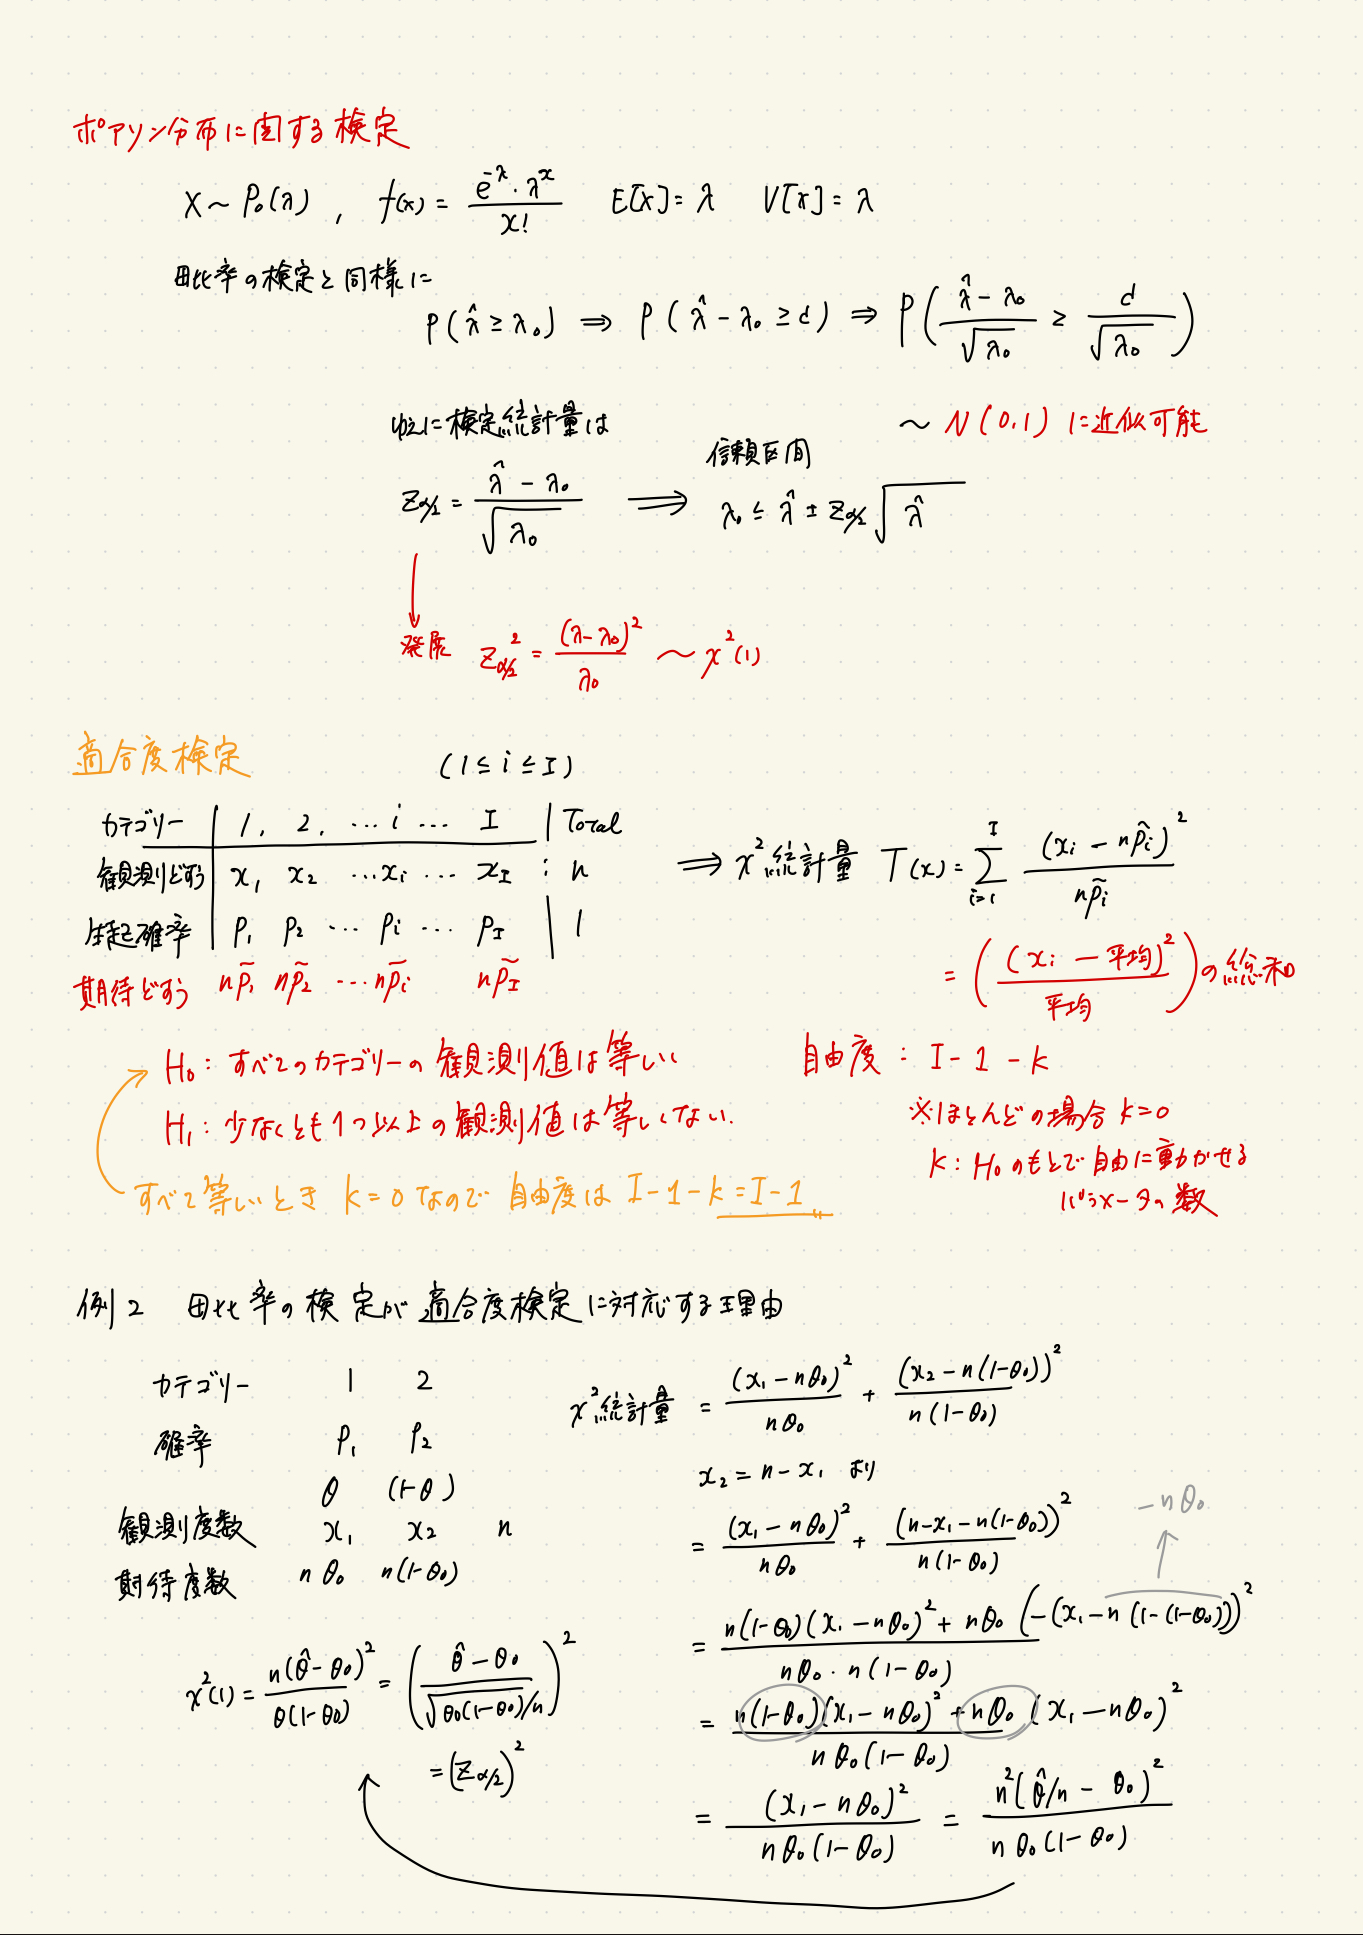 ポアソン分布に関する検定
X ~ Po(λ) , f(x) = e^{-λ}・λ^x / x!  E[X] = λ  V[x] = λ
母比率の検定と同様に
P(λ̂ ≥ λ₀) ⇒ P(λ̂ - λ₀ ≥ d) ⇒ P( (λ̂ - λ₀)/√λ₀ ≥ d/√λ₀ )
~ N(0,1) に近似可能
ゆえに検定統計量は
信頼区間
Z_{α/2} = (λ̂ - λ₀)/√λ₀ ⟹ λ₀ ≤ λ̂ ± Z_{α/2} √λ̂
発展 Z_{α/2}² = (λ - λ₀)²/λ₀ ~ χ²(1)
適合度検定
(1 ≤ i ≤ I)
カテゴリー | 1, 2, … i … I | Total
観測どすう | x₁ x₂ … xᵢ … x_I : n
生起確率 | p₁ p₂ … pᵢ … p_I | 1
期待どすう np̃₁ np̃₂ … np̃ᵢ np̃_I
⟹ χ²統計量 T(x) = Σ_{i=1}^{I} (xᵢ - np̃ᵢ)² / np̃ᵢ
= ( (xᵢ - 平均)² / 平均 ) の総和
H₀: すべてのカテゴリーの観測値は等しい
H₁: 少なくとも1つ以上の観測値は等しくない.
すべて等しいとき k=0 なので 自由度は I-1-k = I-1
自由度 : I-1-k
※ほとんどの場合 k=0
k: H₀のもとで自由に動かせる
パラメータの数
例2 母比率の検定が適合度検定に対応する理由
カテゴリー 1 2
確率 P₁ P₂
θ (1-θ)
観測度数 x₁ x₂ n
期待度数 nθ₀ n(1-θ₀)
χ²(1) = n(θ̂ - θ₀)² / θ(1-θ₀) = ( (θ̂ - θ₀) / √θ₀(1-θ₀)/n )²
= (Z_{α/2})²
χ²統計量 = (x₁ - nθ₀)² / nθ₀ + (x₂ - n(1-θ₀))² / n(1-θ₀)
x₂ = n - x₁ より
= (x₁ - nθ₀)² / nθ₀ + (n - x₁ - n(1-θ₀))² / n(1-θ₀)
-nθ₀
= n(1-θ₀)(x₁ - nθ₀)² + nθ₀ (-(x₁ - n(1-(1-θ₀))))² / nθ₀・n(1-θ₀)
= n(1-θ₀)(x₁ - nθ₀)² + nθ₀ (x₁ - nθ₀)² / nθ₀(1-θ₀)
= (x₁ - nθ₀)² / nθ₀(1-θ₀) = n²(θ̂/n - θ₀)² / nθ₀(1-θ₀)